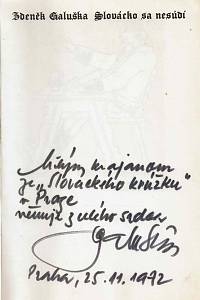 Zdeněk Galuška Slovácko sa nesúdí
Milým krajanom
ze „Slováckého krúžku“
v Praze
věnuje z celého srdca
Galuška
Praha, 25.11.1992